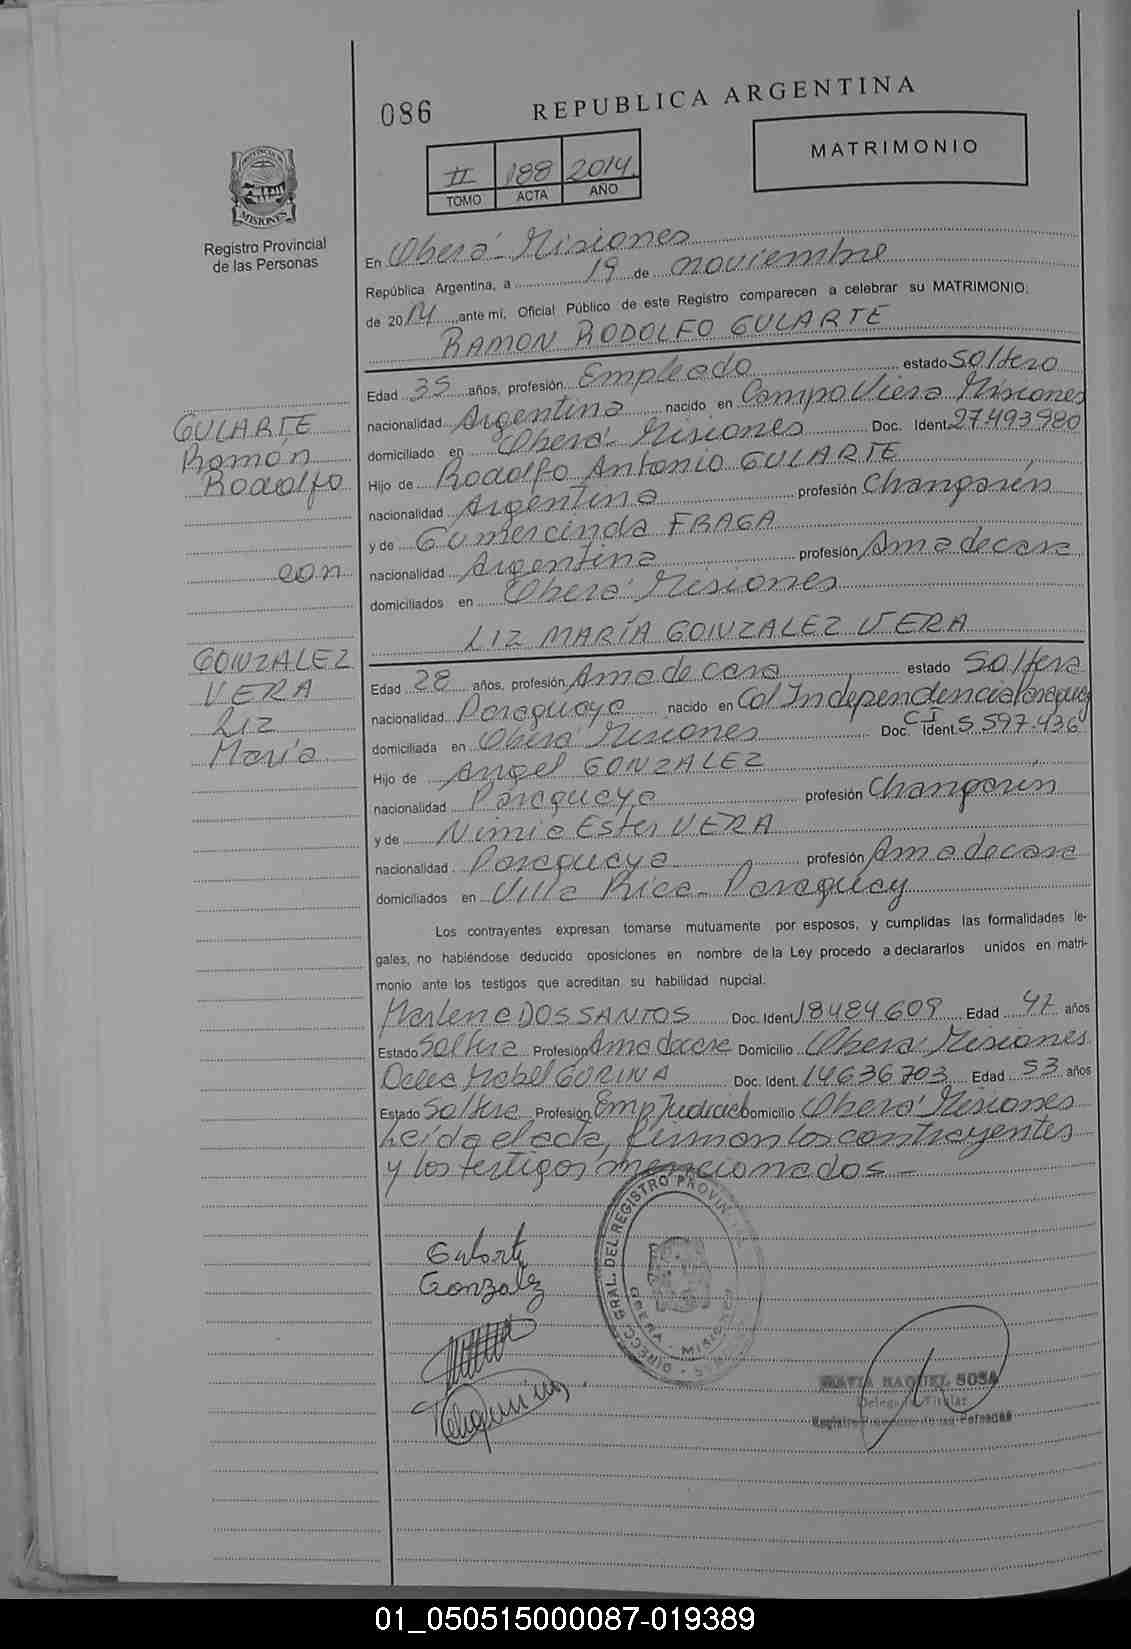 086
REPUBLICA ARGENTINA
II 188 2014
TOMO ACTA AÑO
MATRIMONIO
PROVINCIA DE MISIONES
Registro Provincial
de las Personas
En Oberá - Misiones
República Argentina, a 19 de noviembre
de 2014, ante mí, Oficial Público de este Registro comparecen a celebrar su MATRIMONIO:
RAMON RODOLFO GULARTE
Edad 35 años, profesión Empleado estado Soltero
nacionalidad Argentina nacido en Campo Viera Misiones
domiciliado en Oberá - Misiones Doc. Ident. 27.493.980
Hijo de Rodolfo Antonio GULARTE
nacionalidad Argentina profesión Changarín
y de Gumercinda FRAGA
nacionalidad Argentina profesión Ama de casa
domiciliados en Oberá Misiones
LIZ MARÍA GONZALEZ VERA
GULARTE
Ramon
Rodolfo
con
GONZALEZ
VERA
Liz
María
Edad 28 años, profesión Ama de casa estado Soltera
nacionalidad Paraguaya nacido en Col Independencia Paraguay
domiciliada en Oberá Misiones Doc. CI Ident. 5.597.436
Hijo de Angel GONZALEZ
nacionalidad Paraguaya profesión Changarín
y de Nimia Ester VERA
nacionalidad Paraguaya profesión Ama de casa
domiciliados en Villa Rica - Paraguay
Los contrayentes expresan tomarse mutuamente por esposos, y cumplidas las formalidades le-
gales, no habiéndose deducido oposiciones en nombre de la Ley procedo a declararlos unidos en matri-
monio ante los testigos que acreditan su habilidad nupcial.
Marlene DOS SANTOS Doc. Ident. 18484609 Edad 47 años
Estado Soltera Profesión Ama de casa Domicilio Oberá Misiones
Delia Mabel GURINA Doc. Ident. 14636703 Edad 53 años
Estado Soltera Profesión Emp Judicial Domicilio Oberá Misiones
Leída el acta, firman los contrayentes
y los testigos mencionados -
DIRECC. GRAL. DEL REGISTRO PROVIN
OBERA - MISIONES
Gularte
Gonzalez
RAQUEL SOSA
Titular
01_050515000087-019389